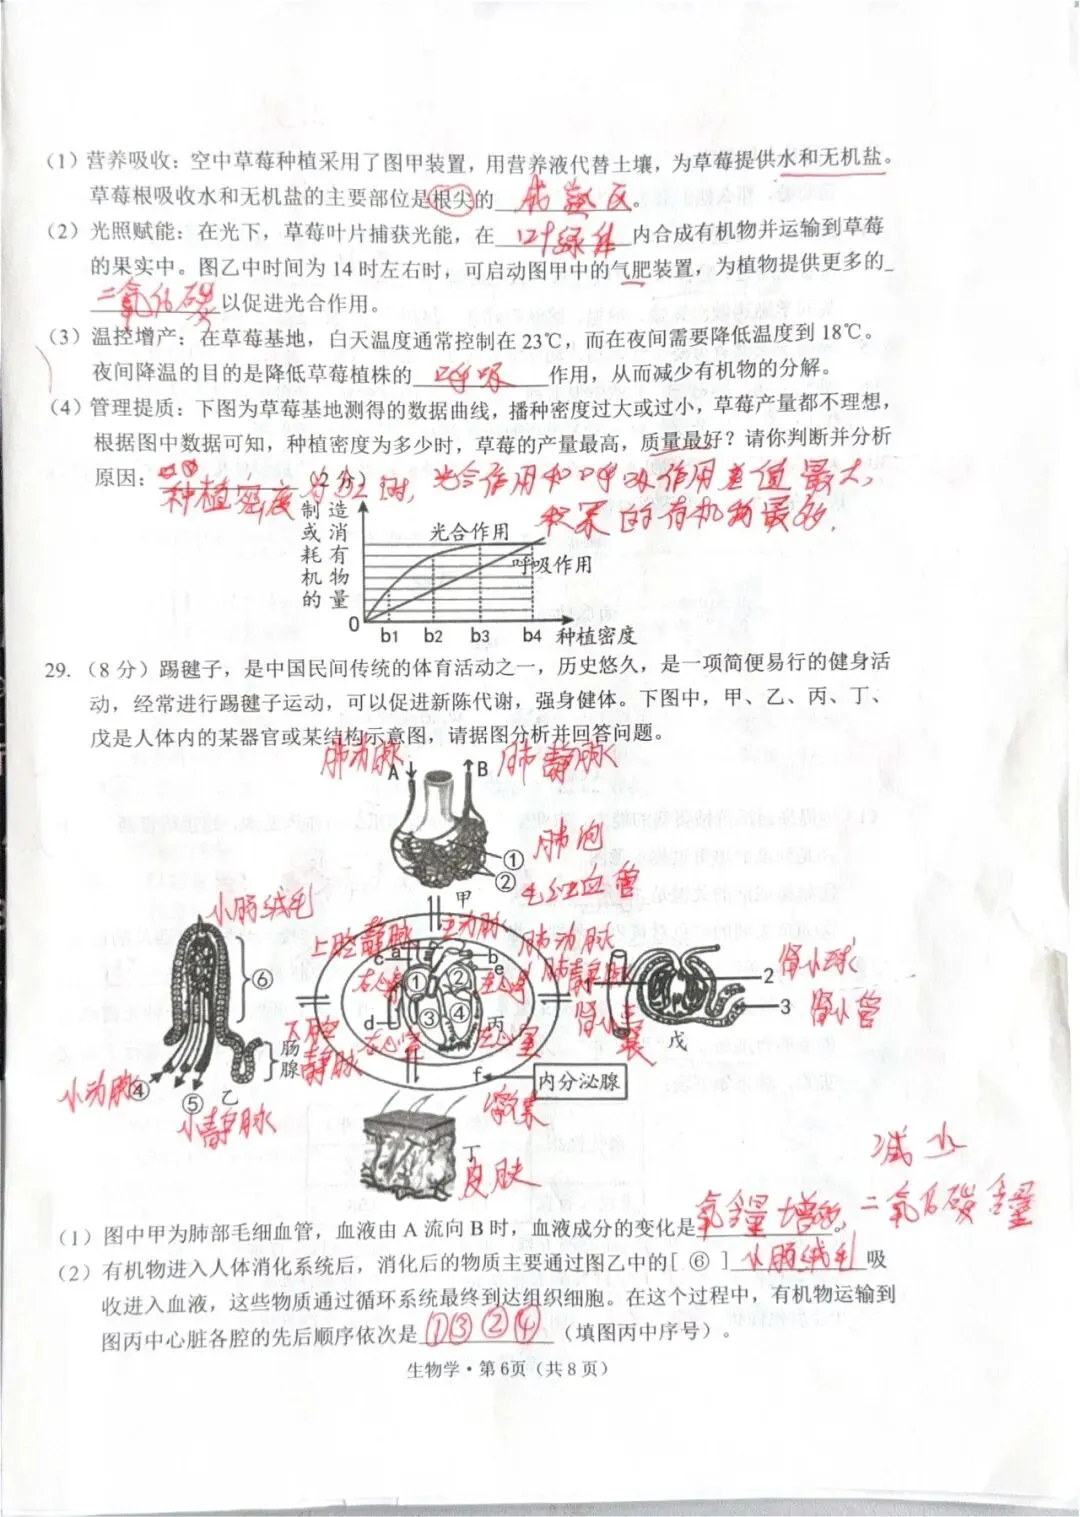 (1) 营养吸收：空中草莓种植采用了图甲装置，用营养液代替土壤，为草莓提供水和无机盐。
草莓根吸收水和无机盐的主要部位是根尖的 成熟区 。
(2) 光照赋能：在光下，草莓叶片捕获光能，在 叶绿体 内合成有机物并运输到草莓
的果实中。图乙中时间为 14 时左右时，可启动图甲中的气肥装置，为植物提供更多的_
二氧化碳 以促进光合作用。
(3) 温控增产：在草莓基地，白天温度通常控制在 23℃，而在夜间需要降低温度到 18℃。
夜间降温的目的是降低草莓植株的 呼吸 作用，从而减少有机物的分解。
(4) 管理提质：下图为草莓基地测得的数据曲线，播种密度过大或过小，草莓产量都不理想，
根据图中数据可知，种植密度为多少时，草莓的产量最高，质量最好？请你判断并分析
原因： (2 分)
种植密度为b2时，光合作用和呼吸作用差值最大，
积累的有机物最多.
制造
或消
耗有
机物
的量
光合作用
呼吸作用
0 b1 b2 b3 b4 种植密度
29.（8 分）踢毽子，是中国民间传统的体育活动之一，历史悠久，是一项简便易行的健身活
动，经常进行踢毽子运动，可以促进新陈代谢，强身健体。下图中，甲、乙、丙、丁、
戊是人体内的某器官或某结构示意图，请据图分析并回答问题。
肺动脉 A B 肺静脉
① 肺泡
② 毛细血管
甲
小肠绒毛
⑥
肠腺
小动脉 ④
⑤ 乙
小静脉
上腔静脉 主动脉 肺动脉
c a b
e 肺静脉
① ② ③ ④
左心房
d 丙
下腔静脉
左心室
f 内分泌腺
激素
肾小囊
2 肾小球
3 肾小管
戊
丁
皮肤
减少
(1) 图中甲为肺部毛细血管，血液由 A 流向 B 时，血液成分的变化是 氧含量增多，二氧化碳含量 。
(2) 有机物进入人体消化系统后，消化后的物质主要通过图乙中的[ ⑥ ] 小肠绒毛 吸
收进入血液，这些物质通过循环系统最终到达组织细胞。在这个过程中，有机物运输到
图丙中心脏各腔的先后顺序依次是 ①③②④ （填图丙中序号）。
生物学·第 6页（共 8 页）